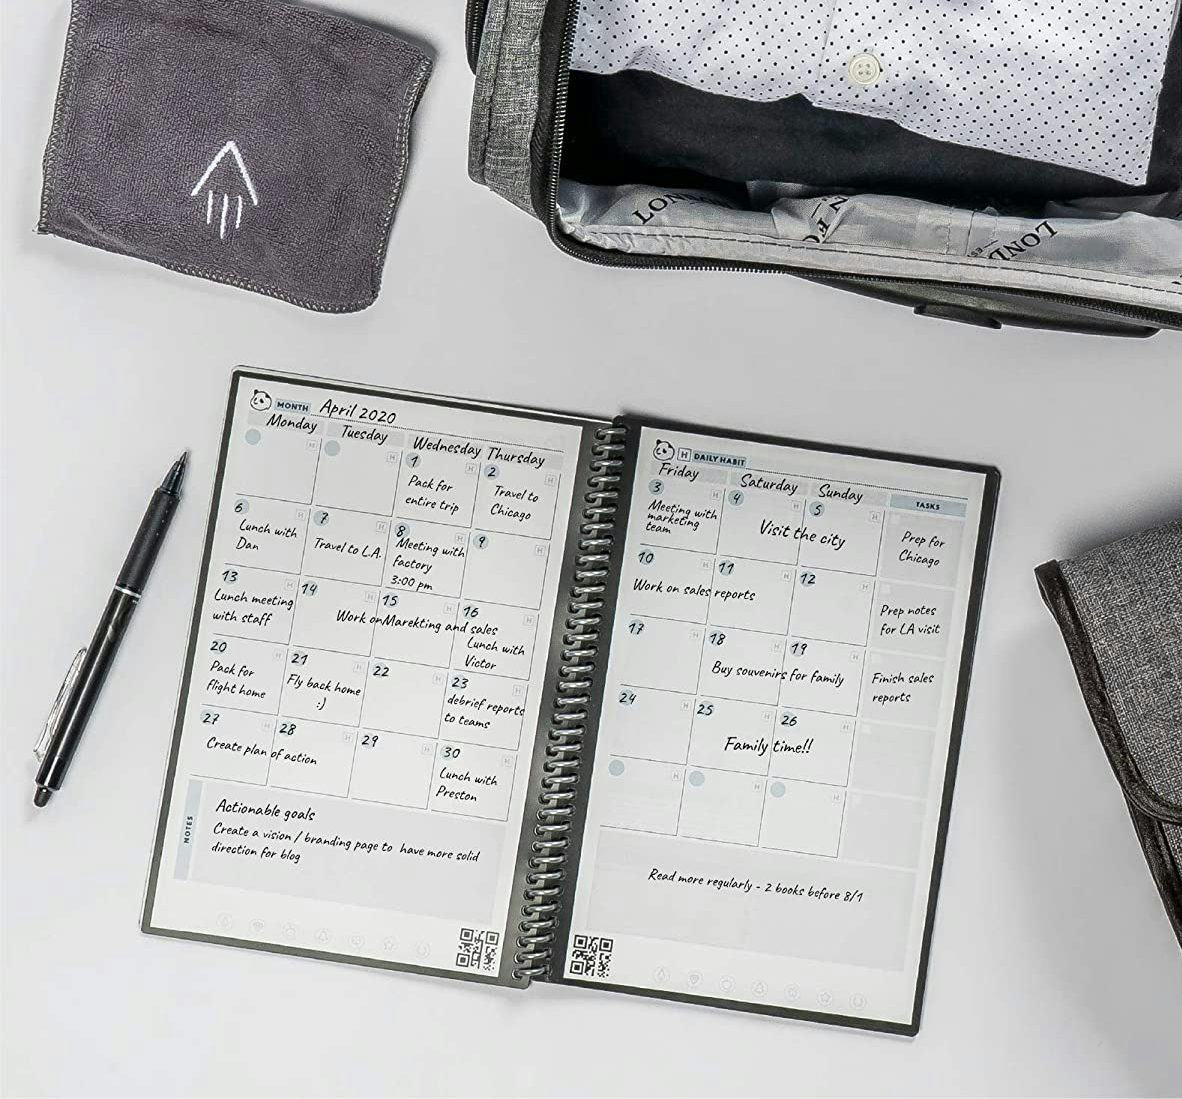 MONTH April 2020
Monday Tuesday Wednesday Thursday
1 2
Pack for
entire trip
Travel to
Chicago
6 7 8 9
Lunch with
Dan
Travel to L.A.
Meeting with
factory
3:00 pm
13 14 15 16
Lunch meeting
with staff
Work on Marekting and sales
Lunch with
Victor
20 21 22 23
Pack for
flight home
Fly back home
:)
debrief reports
to teams
27 28 29 30
Create plan of action
Lunch with
Preston
NOTES
Actionable goals
Create a vision / branding page to have more solid
direction for blog
H DAILY HABIT
Friday Saturday Sunday
TASKS
3 4 5
Meeting with
marketing
team
Visit the city
Prep for
Chicago
10 11 12
Work on sales reports
Prep notes
for LA visit
17 18 19
Buy souvenirs for family
Finish sales
reports
24 25 26
Family time!!
Read more regularly - 2 books before 8/1
LOND